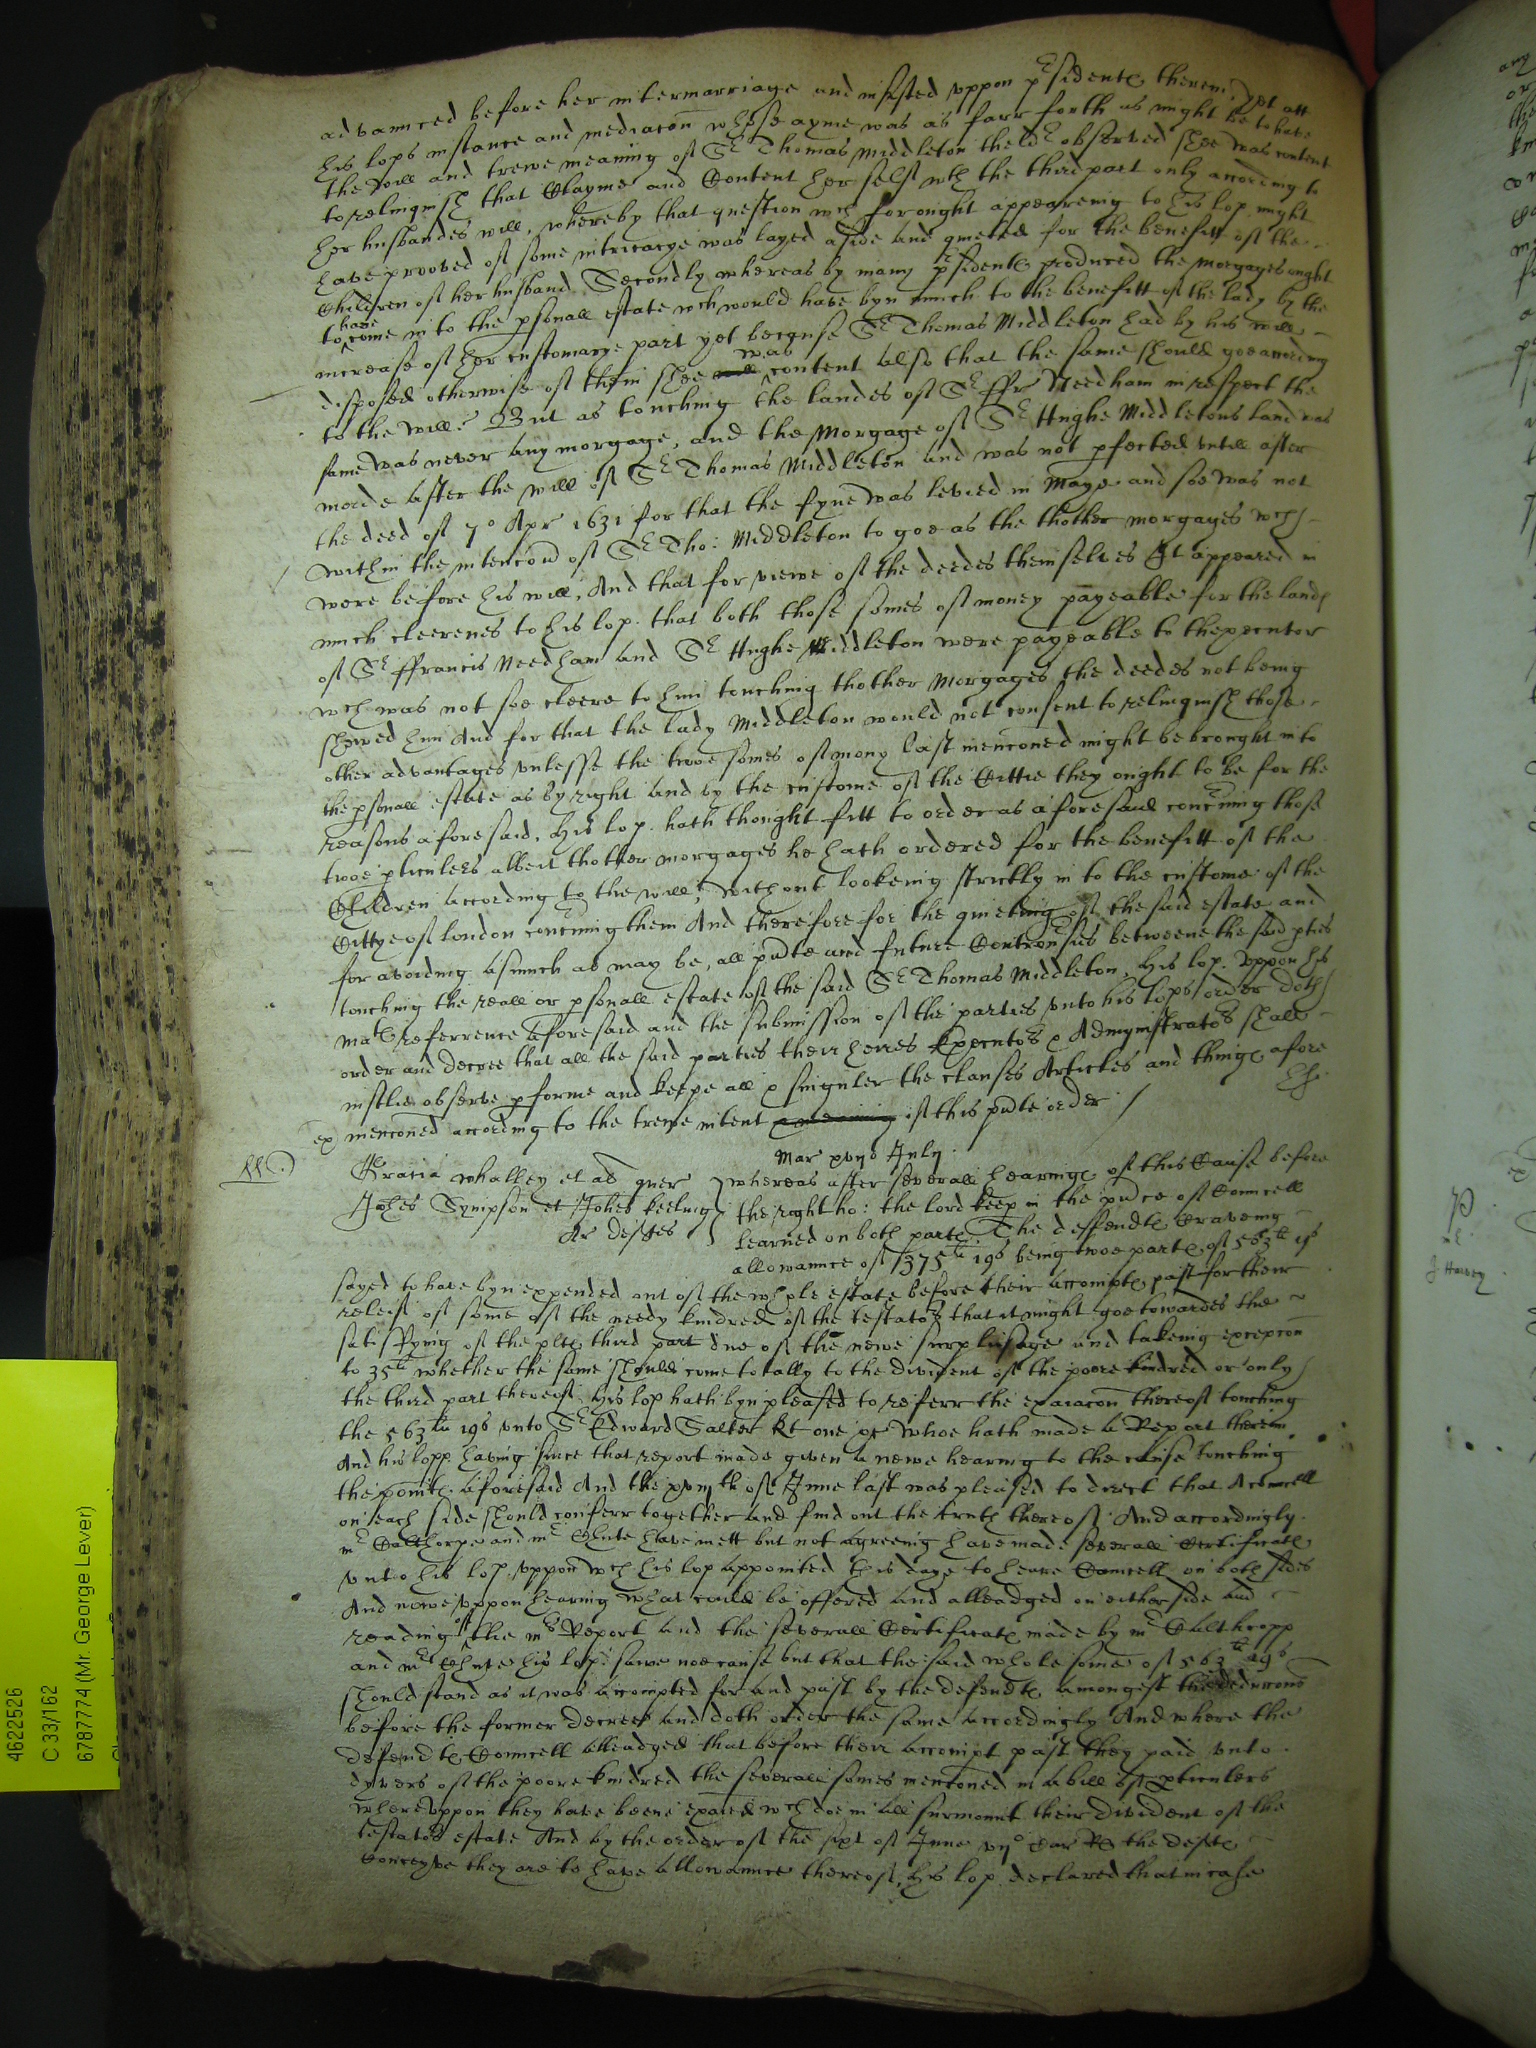 advannced before her intermarriage and insisted uppon presidentes therein, yet att
his lops instance and mediacon whose ayme was as farr forth as might be to have
the will and trewe meaning of Sr Thomas Middleton theldr observed shee was content
to relinquish that Clayme and Content her self wth the third part only according to
her husbandes will, whereby that question wch for ought appeareing to his lop. might
have prooved of some intricacye was layed aside and quieted for the benefitt of the
Children of her husband. Secondly whereas by many presidentes produced the morgages ought
to have come in to the psonall estate wch would have byn much to the benefitt of the lady by the
increase of her customarye part yet because Sr Thomas Middleton had by his will
disposed otherwise of them shee was content also that the same should goe according
to the will. But as touching the landes of Sr ffr Needham in respect the
same was never any morgage, and the Morgage of Sr Hughe Middletons land was
made after the will of Sr Thomas Middleton and was not pfected untill after
the deed of 7o Apr 1631 for that the fyne was levied in Maye and soe was not
within the intencon of Sr Tho: Middleton to goe as the thother morgages wch
were before his will, And that for viewe of the deedes themselves It appeared in
much cleerenes to his lop. that both those somes of money payeable for the landes
of Sr ffrancis Needham and Sr Hughe Middleton were payeable to thexecutor
wch was not soe cleere to him touching thother Morgages the deedes not being
shewed him And for that the lady Middleton would not consent to relinquish those
other advantages unlesse the twoe somes of mony last menconed might be brought in to
the psonall estate as by right and by the custome of the Cittie they ought to be for the
reasons aforesaid, His lop. hath thought fitt to order as aforesaid concrning those
twoe pticulers albeit thother morgages he hath ordered for the benefitt of the
Children according to the will, without lookeing strictly in to the custome of the
Cittye of london concrning them And therefore for the quieting of the said estate and
for avoiding asmuch as may be, all pnte and future Controusies betweene the said pties
touching the reall or psonall estate of the said Sr Thomas Middleton, His lop. uppon his
mats referrence aforesaid and the submission of the parties unto his lops order doth
order and decree that all the said parties their heires Executors & Admynistrators shall
iustlie observe pforme and keepe all & singuler the clauses Articles and thinges afore
ex menconed according to the trewe intent of this pnte order
Mar xvijo July
Gratia Whalley et al quer
Johes Sympson et Johes Keeling
Ar deftes
whereas after severall hearinges of this Cause before
the right ho: the lord keep in the pnce of Councell
learned on both partes. The deffendtes Craveing
allowannce of 375li 19s being twoe partes of 563li 19s
sayed to have byn expended out of the whole estate before their accomptes past for their
releif of some of the needy kindred of the testators that it might goe towardes the
satisfying of the pltes third part due of the newe surplusage and takeing excepcon
to 35li whether the same should come totally to the divident of the poore kindred or only
the third part thereof. His lop hath byn pleased to referr the exaiacon thereof touching
the 563li 19s unto Sr Edward Salter Kt one &c whoe hath made a Report therein
And his lopp having since that report made given a newe hearing to the cause touching
the pointes aforesaid And the xviijth of June last was pleased to direct that A councell
on each side should conferr together and find out the truth thereof And accordingly
mr Calthorpe and mr Chute have mett but not agreeing have made severall Certificates
unto his lop, uppon wch his lop appointed this daye to heare Councell on both sides
And nowe uppon hearing what could be offered and alleadged on either side and
reading of the mrs Report and the severall Certificates made by mr Calthropp
and mr Chute his lop: sawe noe cause but that the said whole some of 563li 19s
should stand as it was accompted for and past by the defendtes amongest their deduccons
before the former decree and doth order the same accordingly And where the
defendtes Councell alleadged that before their accompt past they paid unto
dyvers of the poore kindred the severall somes menconed in a bill of pticulers
whereuppon they have beene exaied wch doe in all surmount their divident of the
testators estate And by the order of the sixt of June vijo Car Rs the deftes
Conceyve they are to have allowannce thereof, His lop declared that in case
4622526
C 33/162
6787774 (Mr. George Lever)